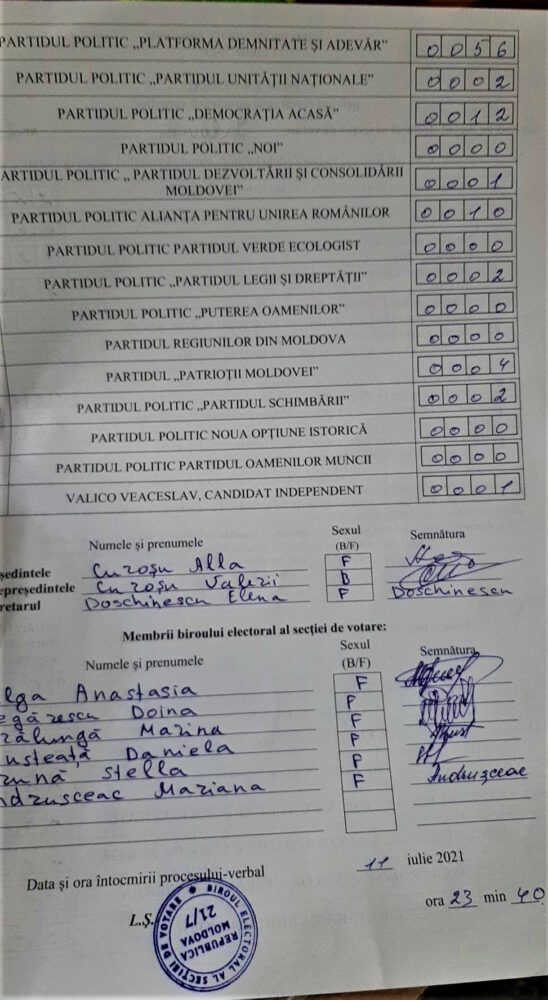 PARTIDUL POLITIC „PLATFORMA DEMNITATE ȘI ADEVĂR” 0056
PARTIDUL POLITIC „PARTIDUL UNITĂȚII NAȚIONALE” 0002
PARTIDUL POLITIC „DEMOCRAȚIA ACASĂ” 0012
PARTIDUL POLITIC „NOI” 0000
ARTIDUL POLITIC „ PARTIDUL DEZVOLTĂRII ȘI CONSOLIDĂRII
MOLDOVEI” 0001
PARTIDUL POLITIC ALIANȚA PENTRU UNIREA ROMÂNILOR 0010
PARTIDUL POLITIC PARTIDUL VERDE ECOLOGIST 0000
PARTIDUL POLITIC „PARTIDUL LEGII ȘI DREPTĂȚII” 0002
PARTIDUL POLITIC „PUTEREA OAMENILOR” 0000
PARTIDUL REGIUNILOR DIN MOLDOVA 0000
PARTIDUL „PATRIOȚII MOLDOVEI” 0004
PARTIDUL POLITIC „PARTIDUL SCHIMBĂRII” 0002
PARTIDUL POLITIC NOUA OPȚIUNE ISTORICĂ 0000
PARTIDUL POLITIC PARTIDUL OAMENILOR MUNCII 0000
VALICO VEACESLAV, CANDIDAT INDEPENDENT 0001
Numele și prenumele Sexul (B/F) Semnătura
ședintele Curoșu Alla F
epreședintele Curoșu Valerii B
retarul Doschinescu Elena F Doschinescu
Membrii biroului electoral al secției de votare:
Numele și prenumele Sexul (B/F) Semnătura
lga Anastasia F
egărescu Doina F
zălungă Marina F
usteață Daniela F
zună Stella F
ndrusceac Mariana F Andrusceac
Data și ora întocmirii procesului-verbal 11 iulie 2021
ora 23 min 40
L.Ș.
BIROUL ELECTORAL AL SECȚIEI DE VOTARE
21/7
REPUBLICA
MOLDOVA